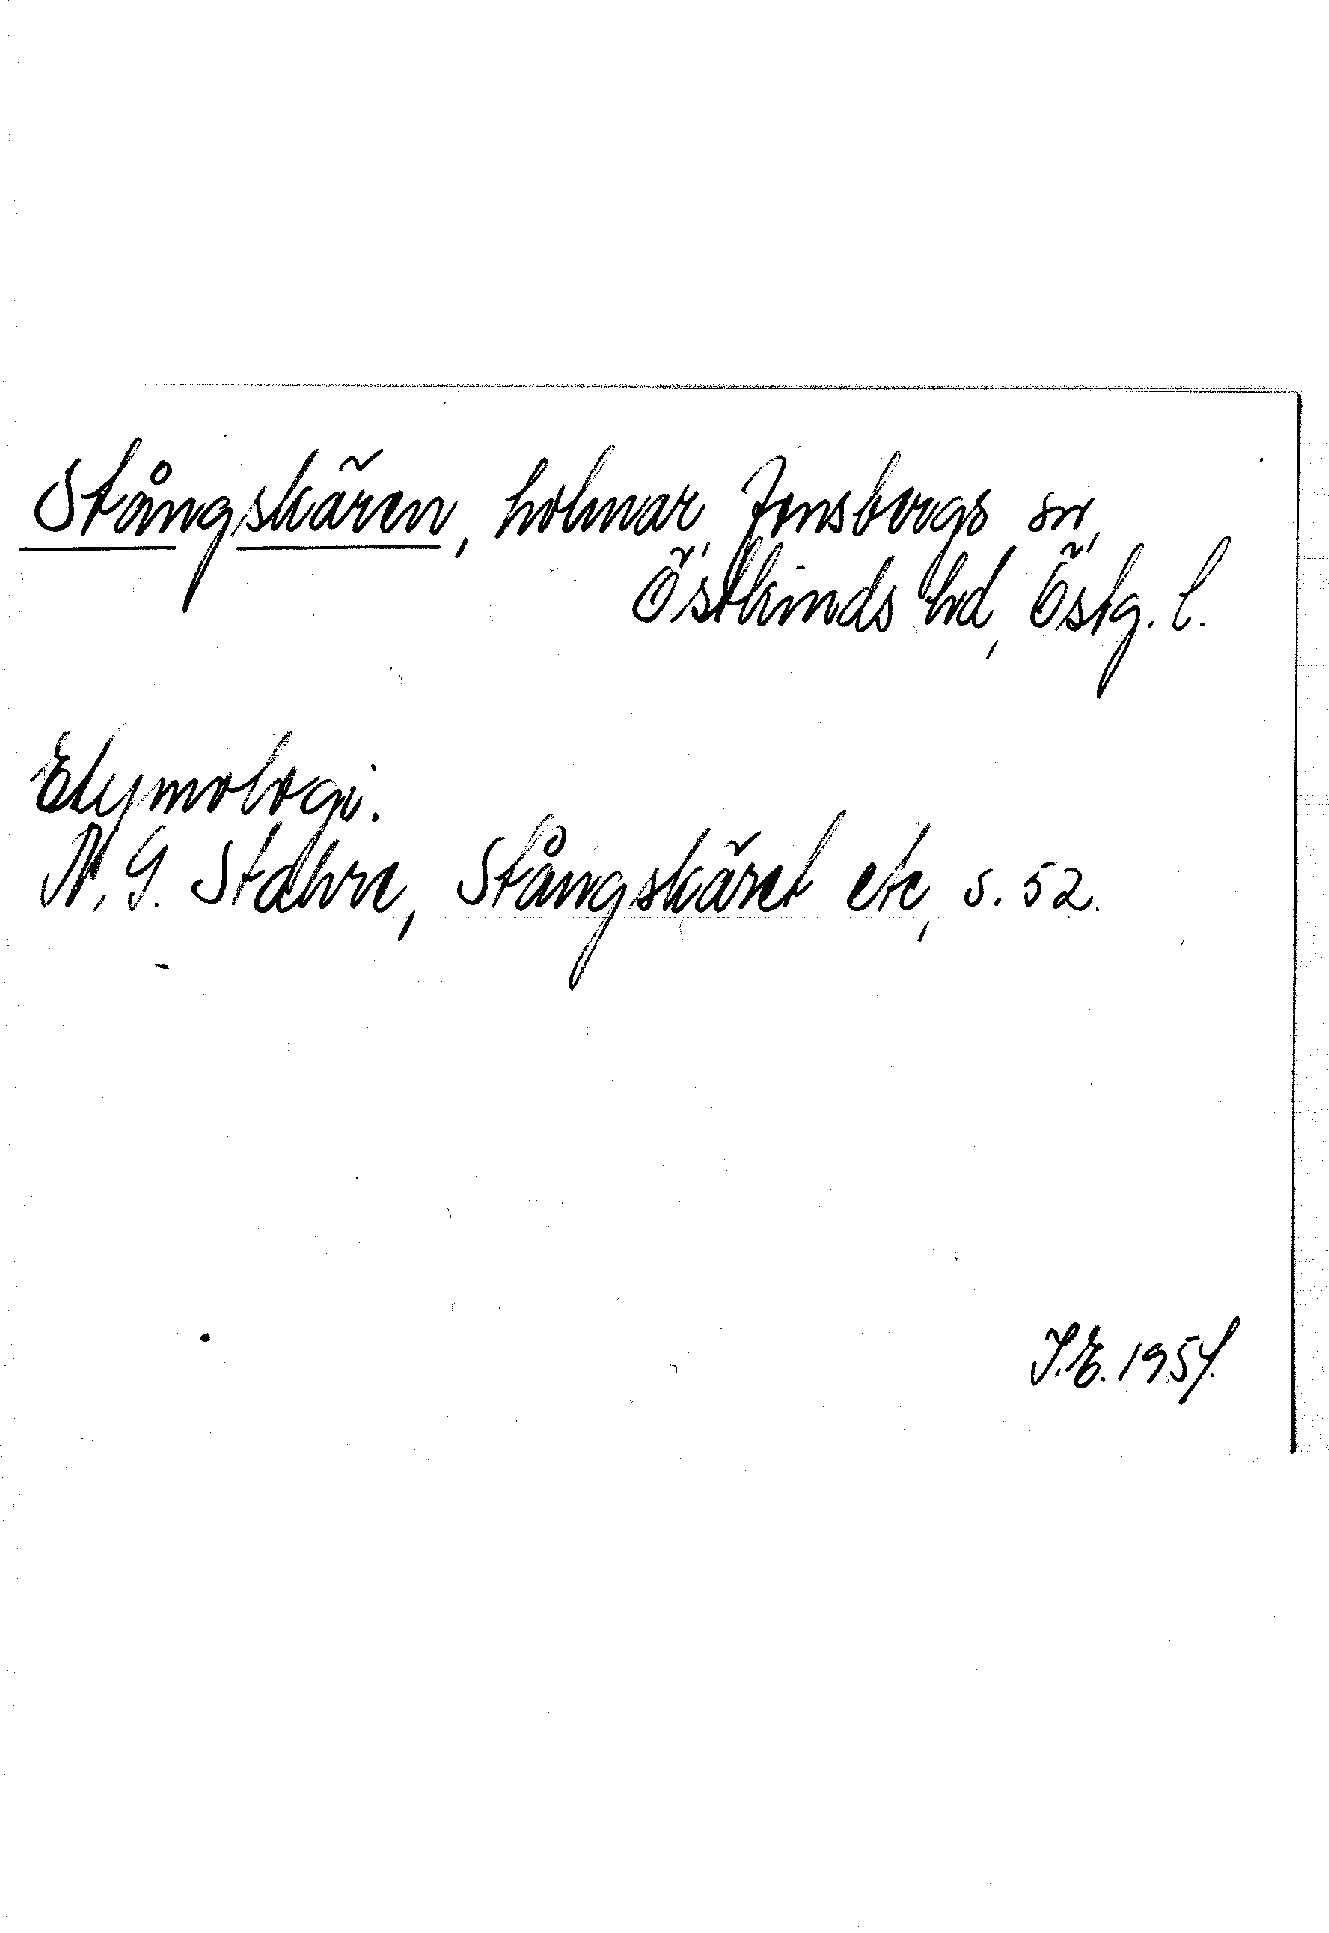 Stångskären, holmar, Jonsbergs sn,
Östkinds hd, Östg. l.
Etymologi.
N. G. Stahre, Stångskäret etc, s. 52.
I.E. 1957.